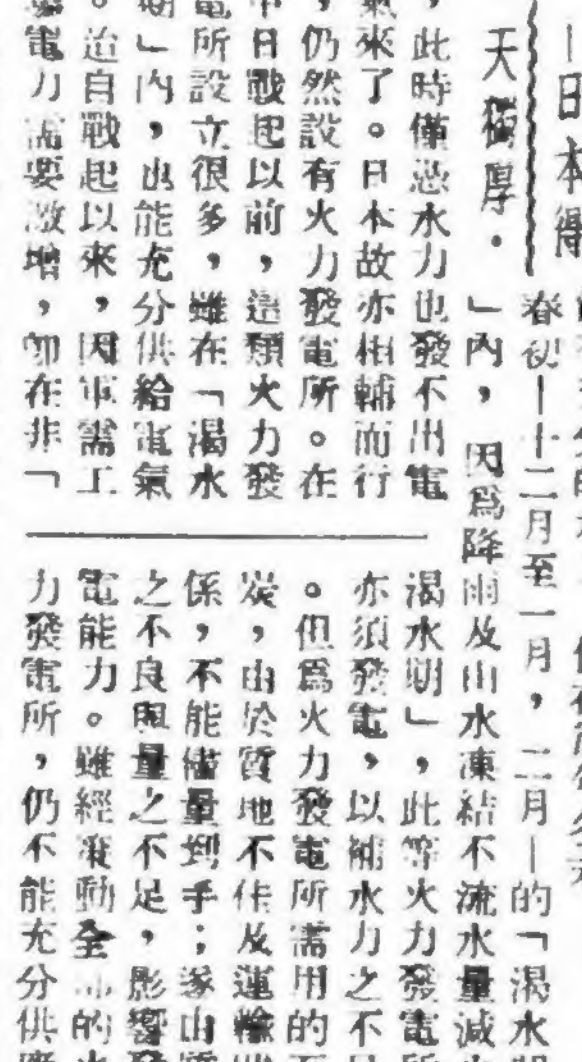 —日本得
天獨厚。
春初—十二月至一月，二月—的「渴水
」內，因爲降雨及山水凍結不流水量減
，此時僅恐水力也發不出電
氣來了。日本故亦相輔而行
，仍然設有火力發電所。在
中日戰起以前，這類火力發
電所設立很多，雖在「渴水
期」內，也能充分供給電氣
。迨自戰起以來，因軍需工
電力需要激增，卽在非「
渴水期」，此等火力發電所
亦須發電，以補水力之不
。但爲火力發電所需用的
炭，由於質地不佳及運輸
係，不能儘量到手；遂由質
之不良與量之不足，影響發
電能力。雖經動全的火
力發電所，仍不能充分供應